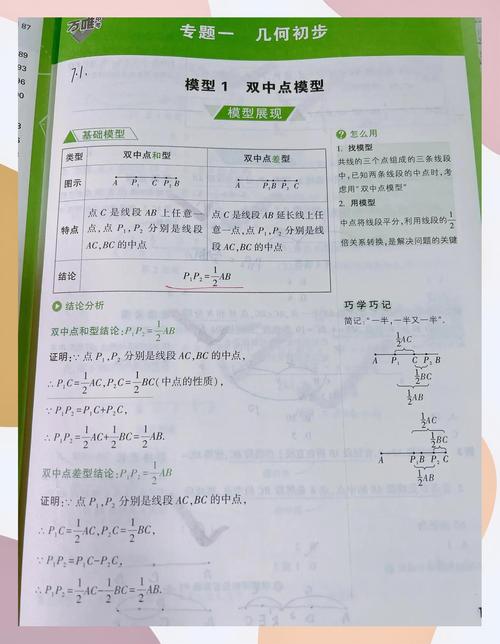 87
89
93
96
00
0
万唯中考
专题一 几何初步
7.1.
模型1 双中点模型
模型展现
基础模型
类型 双中点和型 双中点差型
图示 A P₁ C P₂ B A P₁ B P₂ C
特点 点 C 是线段 AB 上任意一点,点 P₁,P₂ 分别是线段 AC,BC 的中点
点 C 是线段 AB 延长线上任意一点,点 P₁,P₂ 分别是线段 AC,BC 的中点
结论 P₁P₂=1/2AB
怎么用
1. 找模型
共线的三个点组成的三条线段
中,已知两条线段的中点时,考
虑用“双中点模型”
2. 用模型
中点将线段平分,利用线段的1/2
倍关系转换,是解决问题的关键
结论分析
双中点和型结论:P₁P₂=1/2AB
证明:∵点 P₁,P₂ 分别是线段 AC,BC 的中点,
∴P₁C=1/2AC,P₂C=1/2BC(中点的性质),
∵P₁P₂=P₁C+P₂C,
∴P₁P₂=1/2AC+1/2BC=1/2AB.
双中点差型结论:P₁P₂=1/2AB
证明:∵点 P₁,P₂ 分别是线段 AC,BC 的中点,
∴P₁C=1/2AC,P₂C=1/2BC,
∵P₁P₂=P₁C-P₂C,
∴P₁P₂=1/2AC-1/2BC=1/2AB.
巧学巧记
简记:“一半,一半又一半”.
1/2AC
A P₁ C P₂ B
1/2BC
1/2AB
1/2AB
1/2BC
A P₁ B P₂ C
1/2AC
1